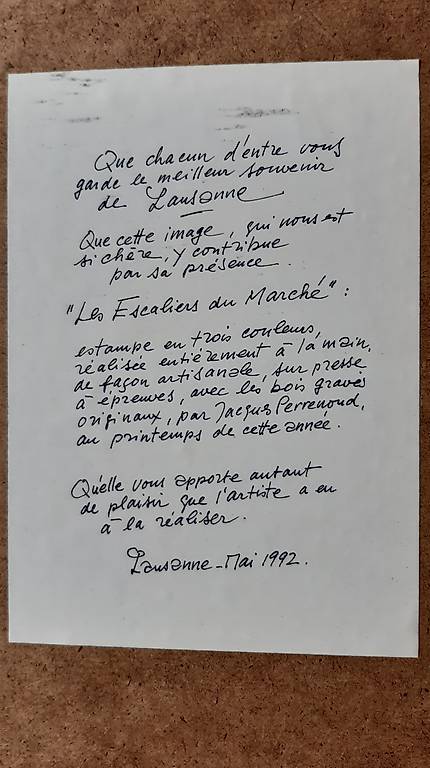 Que chacun d'entre vous
garde le meilleur souvenir
de Lausanne
Que cette image, qui nous est
si chère, y contribue
par sa présence.
"Les Escaliers du Marché" :
estampe en trois couleurs,
réalisée entièrement à la main,
de façon artisanale, sur presse
à épreuves, avec les bois gravés
originaux, par Jacques Perrenoud,
au printemps de cette année.
Qu'elle vous apporte autant
de plaisir que l'artiste a eu
à la réaliser.
Lausanne - Mai 1992.